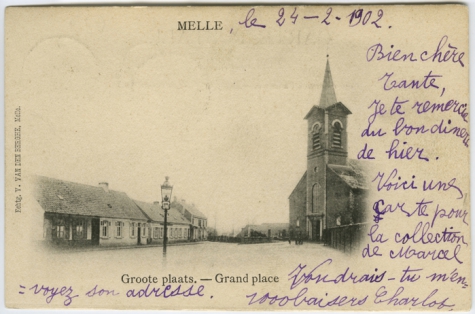 MELLE, le 24-2-1902.
Bien chère
Tante,
Je te remercie
du bon diner
de hier.
Voici une
carte pour
la collection
de Marcel
Voudrais-tu m'en
= voyez son adresse.
1000 baisers Charlot
Groote plaats. — Grand place
Uitg. V. VAN DEN BERGHE, Melle.